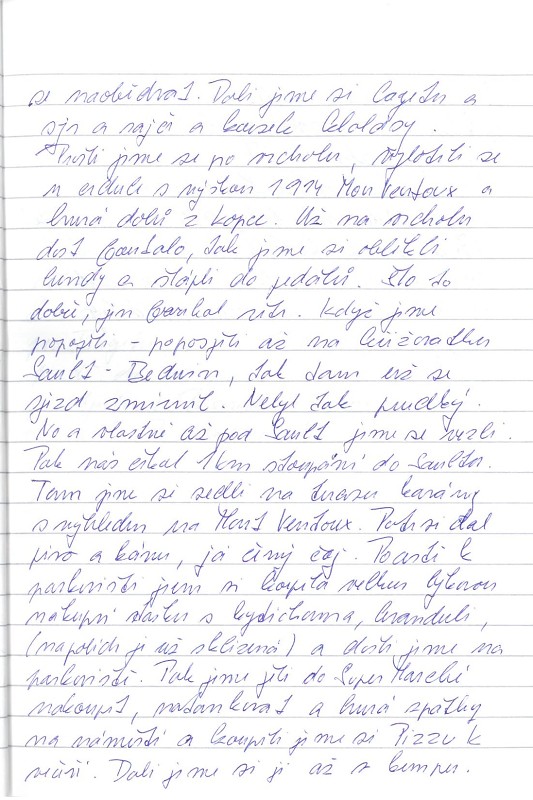 se naobědvat. Dali jsme si bagetu a
sýr a rajče a kousek klobásy.
Prošli jsme se po vrcholu, vyfotili se
u cedule s výškou 1914 Mon Ventoux a
hurá dolů z kopce. Už na vrcholu
dost foukalo, tak jsme si oblékli
bundy a šlápli do pedálů. Šlo to
dobře, jen foukal vítr. Když jsme
popojeli - poposjeli až na křižovatku
Sault - Bedoin, tak tam už se
sjezd zmírnil. Nebyl tak prudký.
No a vlastně až pod Sault jsme se vezli.
Pak nás čekal 1km stoupání do Saultu.
Tam jsme si sedli na terasu kavárny
s výhledem na Mont Ventoux. Petr si dal
pivo a kávu, já černý čaj. Po cestě k
parkovišti jsem si koupila velkou lýkovou
nákupní tašku s kytičkama, levandulí,
(na polích je už sklizená) a došli jsme na
parkoviště. Pak jsme jeli do Super Marché
nakoupit, natankovat a hurá zpátky
na náměstí a koupili jsme si Pizzu k
večeři. Dali jsme si ji až v kempu.